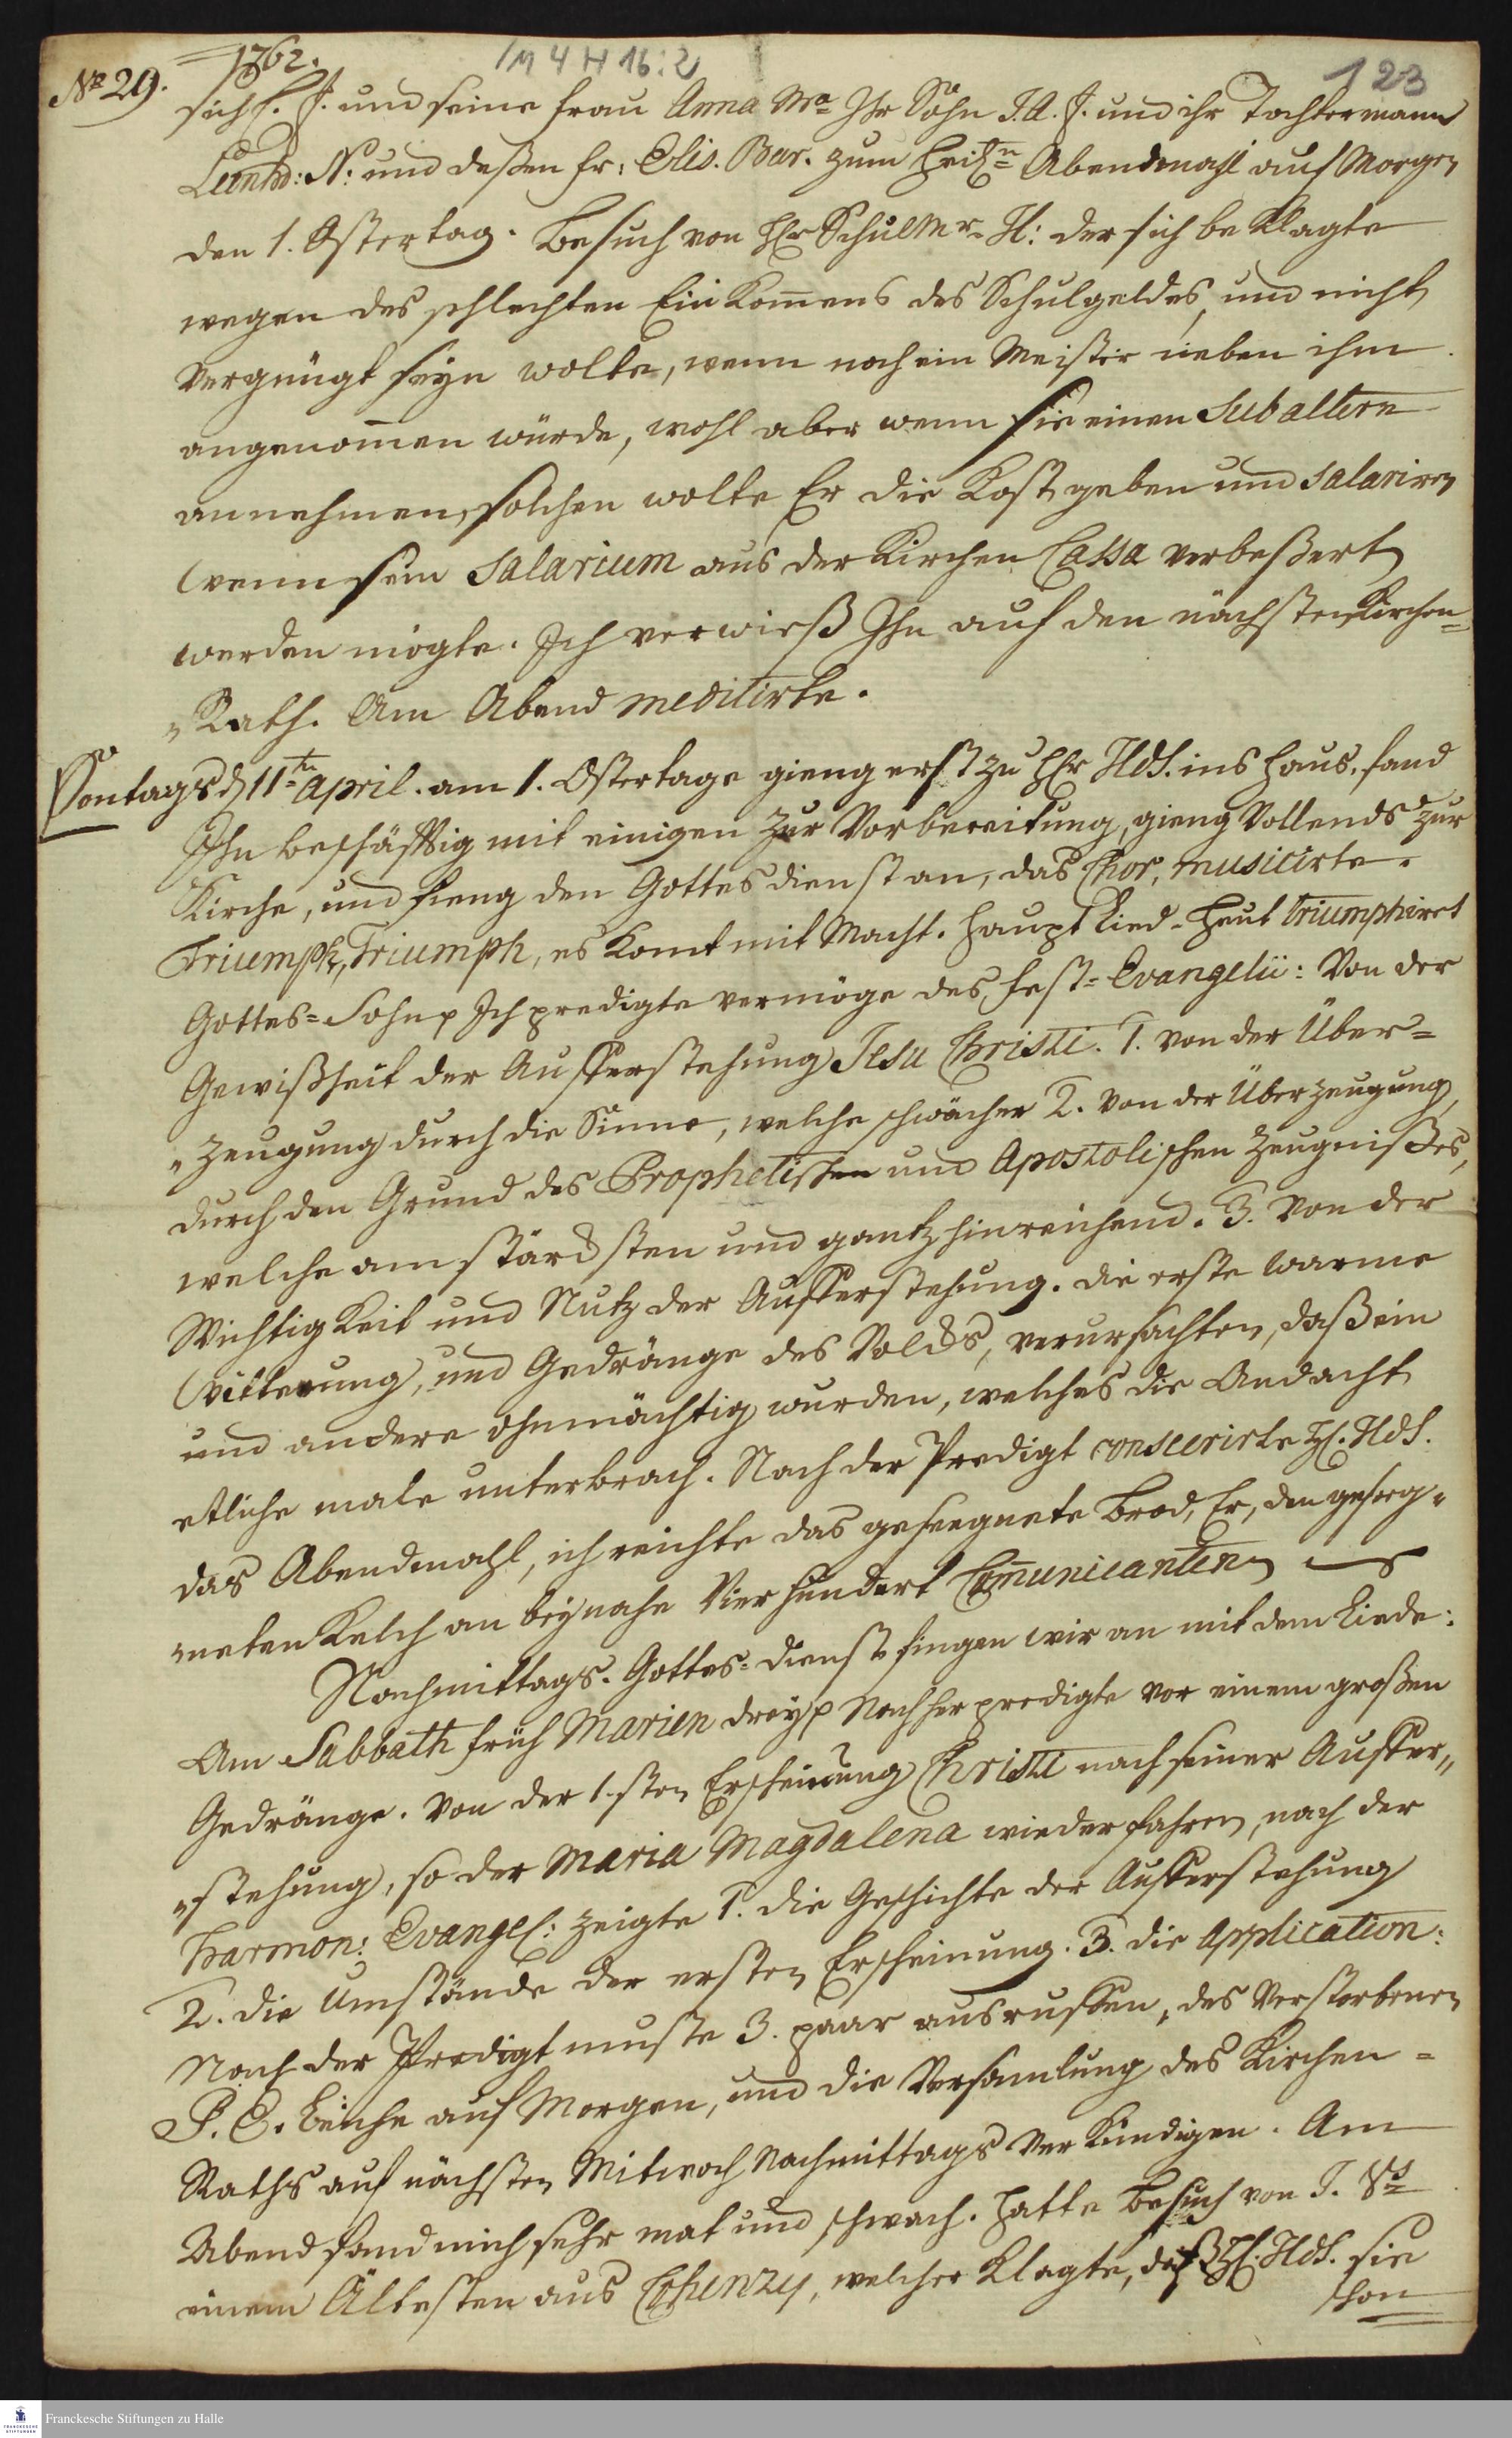 1762.
1 M 4 H 16:2
123
No 29.
sich H. J. und seine Frau Anna Ma Ihr Sohn J. A. J. und ihr Tochtermann
Leonhd: N: und deßen Fr: Elis. Bar. zum heilgn Abendmahl auf Morgen
den 1. Ostertag. Besuch von HEr Schulmr. H: der sich beklagte
wegen des schlechten Einkom̄ens des Schulgeldes, und nicht
vergnügt seyn wolte, wenn noch ein Meister neben ihm
angenom̄en würde, wohl aber wenn sie einen Subaltern
annehmen, solchen wolte Er die Kost geben und salariren
wenn sein Salarium aus der Kirchen Cassa verbeßert
werden mögte. Ich verwieß Ihn auf den nächsten Kirchen=
"Rath. Am Abend meditirte.
Sontags d 11ten April. am 1. Ostertage gieng erst zu HEr Hds. ins Haus. fand
Ihn beschäfftig mit einigen zur Vorbereitung, gieng vollends zur
Kirche, und fieng den Gottesdienst an, das Chor, musicirte.
Triumph, Triumph, es komt mit Macht. Haupt Lied. Heut triumphiret
Gottes=Sohn p Ich predigte vermöge des Fest=Evangelii: Von der
Gewißheit der Aufferstehung Jesu Christi. 1. von der Über=
"zeugung durch die Sinne, welche schwächer 2. von der Überzeugung,
durch den Grund des Prophetischen und Apostolischen Zeugnißes,
welche am stärcksten und gantz hinreichend. 3. von der
Wichtigkeit und Nutz der Aufferstehung. die erste warme
Witterung, und Gedränge des Volcks, verursachten, daß ein
und andere ohnmächtig wurden, welches die Andacht
etliche male unterbrach. Nach der Predigt consecrirte H. Hds.
das Abendmahl, ich reichte das geseegnete Brod, Er, den geseeg"
"neten Kelch an beynahe Vierhundert Com̄unicanten
Nachmittags. Gottes=dienst fingen wir an mit dem Liede:
Am Sabbath früh Marien drey p Nachher predigte vor einem großen
Gedränge. von der 1.sten Erscheinung Christi nach seiner Auffer"
"stehung, so der Maria Magdalena wiederfahren, nach der
Harmon: Evangel: zeigte 1. die Geschichte der Aufferstehung
2. die Umstände der ersten Erscheinung. 3. die Application:
Nach der Predigt muste 3. paar ausruffen, des Verstorbenen
P. E. Leiche auf Morgen, und die Versamlung des Kirchen=
Raths auf nächsten Mitwoch Nachmittags verkündigen. Am
Abend fand mich sehr mat und schwach. hatte Besuch von J.
einem Ältesten aus Cohenzy, welcher klagte, daß H. Hds. sie
schon
Franckesche Stiftungen zu Halle